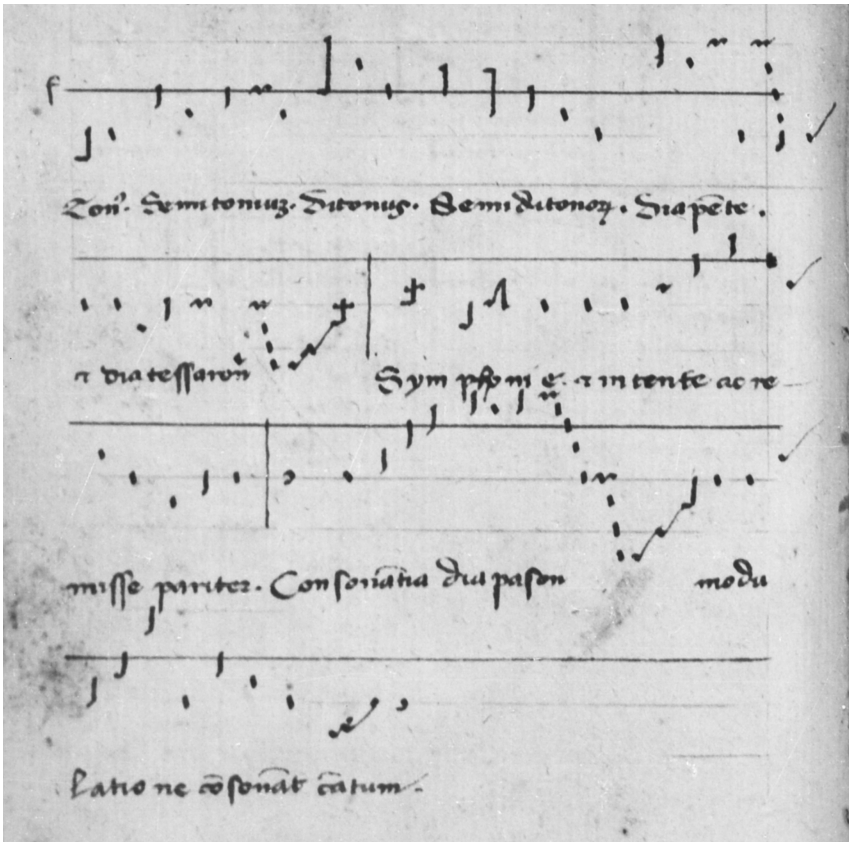 f
Ton9. Semitoniuz. Ditonus. Semiditonoꝝ. Diapēte.
⁊ diatessaron Symphonie. ⁊ intente ac re
misse pariter. Consonātia diapason modu
latio ne cōsonāt cātum.